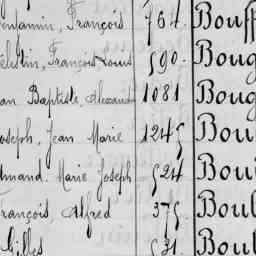 enjamin, François 764. Bouff
élestin, François Louis 590. Boug
an Baptiste, Alexand 1081 Boug
oseph, Jean Marie 1245 Bou
dmand, Marie Joseph 524 Boui
rançois Alfred 375 Boul
Gilles 531. Boul